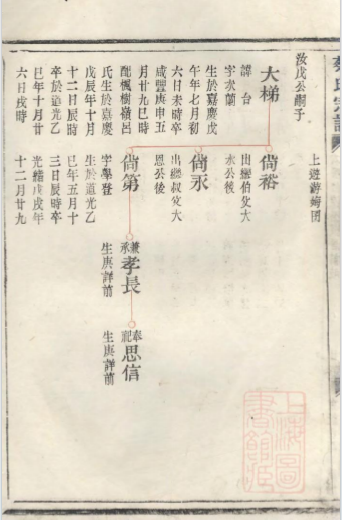 上遊游塆團
汝戊公嗣子
大梯
諱台
字次蘭
生於嘉慶戊
午年七月初
六日未時卒
咸豐庚申五
月廿九巳時
配槐樹嶺呂
氏生於嘉慶
戊辰年十月
十二日辰時
卒於道光乙
巳年十月廿
六日戌時
尙裕
出繼伯父大
永公後
尙永
出繼叔父大
恩公後
尙第
字學登
生於道光乙
巳年五月十
三日辰時卒
光緒戊戌年
十二月廿九
兼承孝長
生庚詳前
奉祀思信
生庚詳前
上海圖書館藏